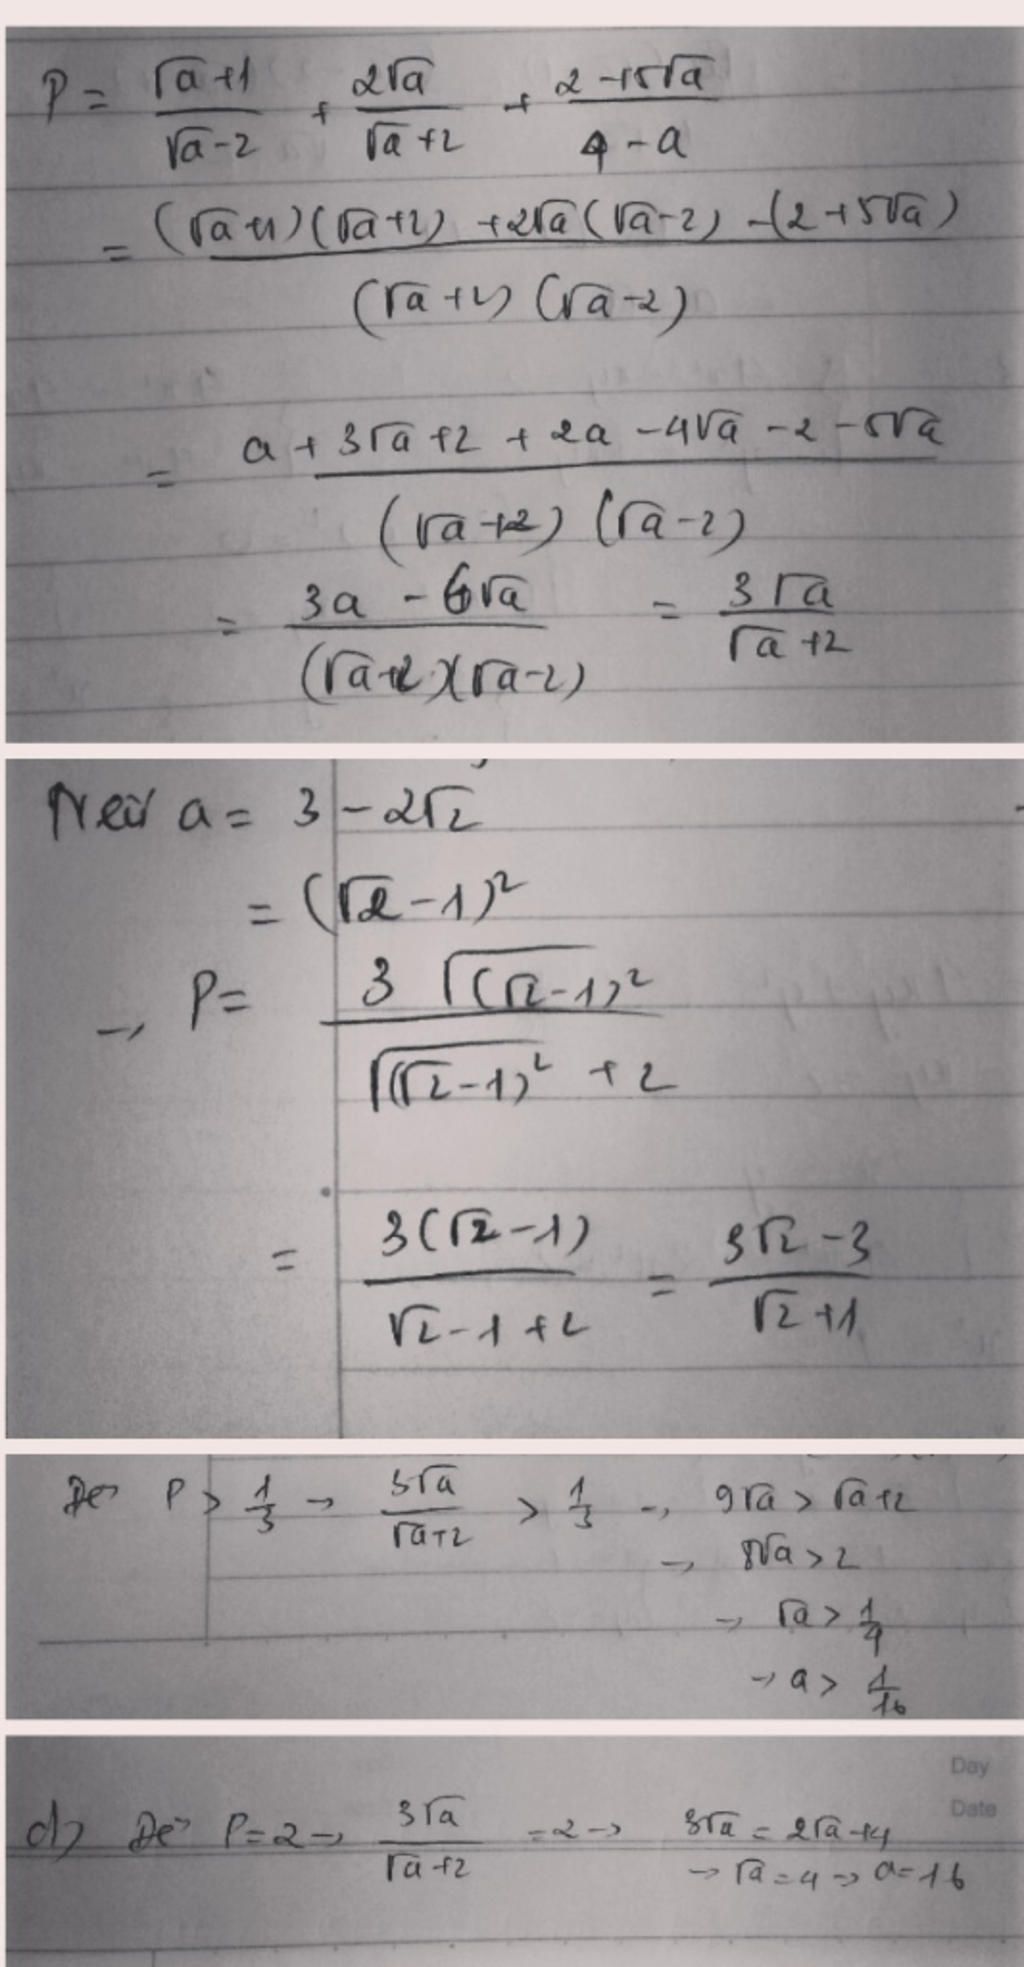 P = (√a+1)/(√a-2) + 2√a/(√a+2) + (2+5√a)/(4-a)
= ((√a+1)(√a+2) + 2√a(√a-2) - (2+5√a))/((√a+2)(√a-2))
= (a + 3√a + 2 + 2a - 4√a - 2 - 5√a)/((√a+2)(√a-2))
= (3a - 6√a)/((√a+2)(√a-2)) = 3√a/(√a+2)
Nếu a = 3 - 2√2
= (√2-1)²
→ P = 3√((√2-1)²)/(√((√2-1)²) + 2)
= 3(√2-1)/(√2-1+2) = (3√2-3)/(√2+1)
Để P > 1/3 → 3√a/(√a+2) > 1/3 → 9√a > √a+2
→ 8√a > 2
→ √a > 1/4
→ a > 1/16
Day
Date
d) Để P=2 → 3√a/(√a+2) = 2 → 3√a = 2√a+4
→ √a = 4 → a = 16